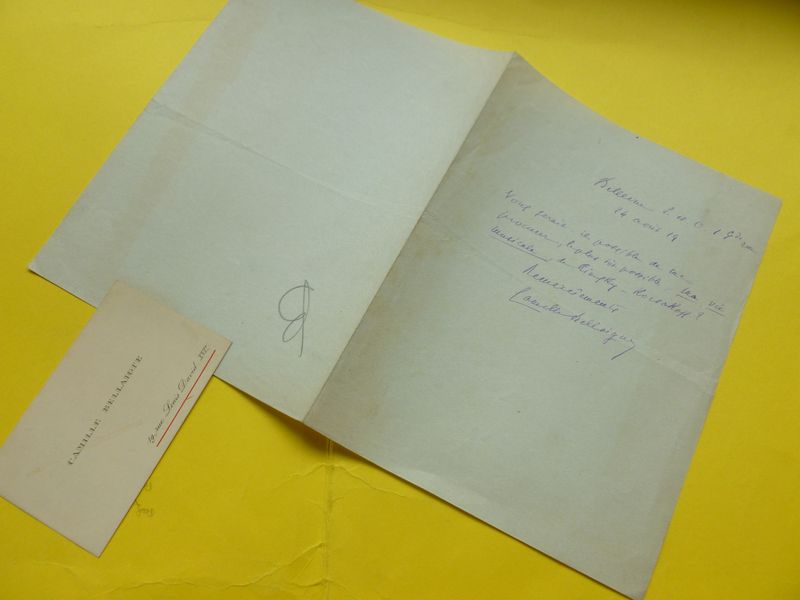 CAMILLE BELLAIGUE
19, rue Louis David. XVIe
14 août 19
Vous serait-il possible de me
procurer, le plus tôt possible Ma vie
musicale, de Rimsky-Korsakoff?
Remerciements
Camille Bellaigue